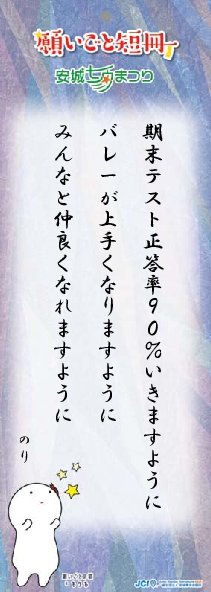 願いごと短冊
安城七夕まつり
期末テスト正答率90%いきますように
バレーが上手くなりますように
みんなと仲良くなれますように
のり
願いごと短冊
JCI